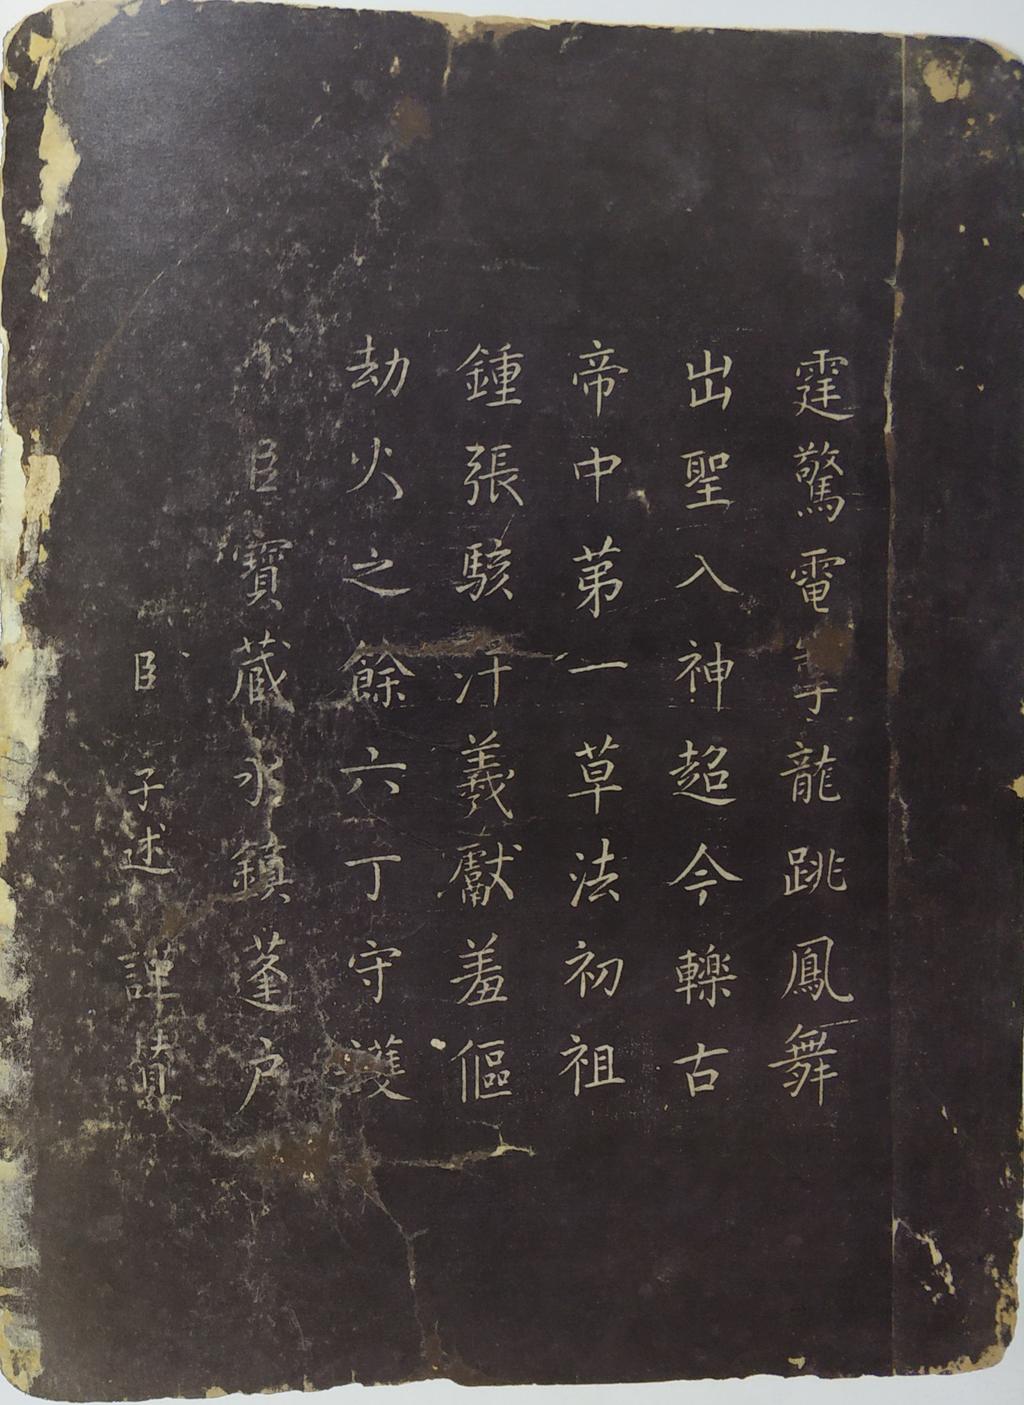 霆驚電掣龍跳鳳舞
出聖入神超今轢古
帝中第一草法初祖
鍾張駭汗羲獻羞傴
劫火之餘六丁守護
小臣寶藏永鎮蓬戶
臣子述謹贊